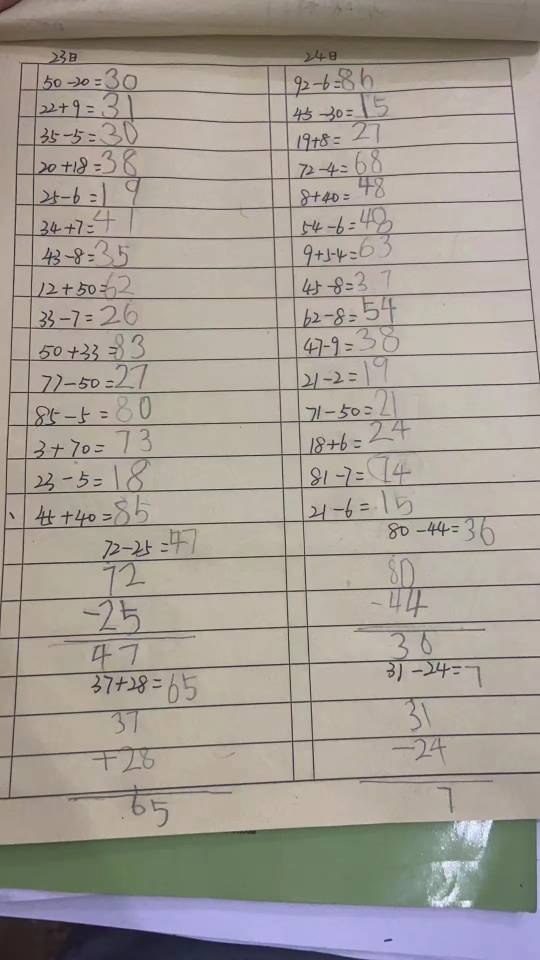 23日
50-20=30
22+9=31
35-5=30
20+18=38
25-6=19
34+7=41
43-8=35
12+50=62
33-7=26
50+33=83
77-50=27
85-5=80
3+70=73
23-5=18
45+40=85
72-25=47
72
-25
47
37+28=65
37
+28
65
24日
92-6=86
45-30=15
19+8=27
72-4=68
8+40=48
54-6=48
9+54=63
45-8=37
62-8=54
47-9=38
21-2=19
71-50=21
18+6=24
81-7=74
21-6=15
80-44=36
80
-44
36
31-24=7
31
-24
7